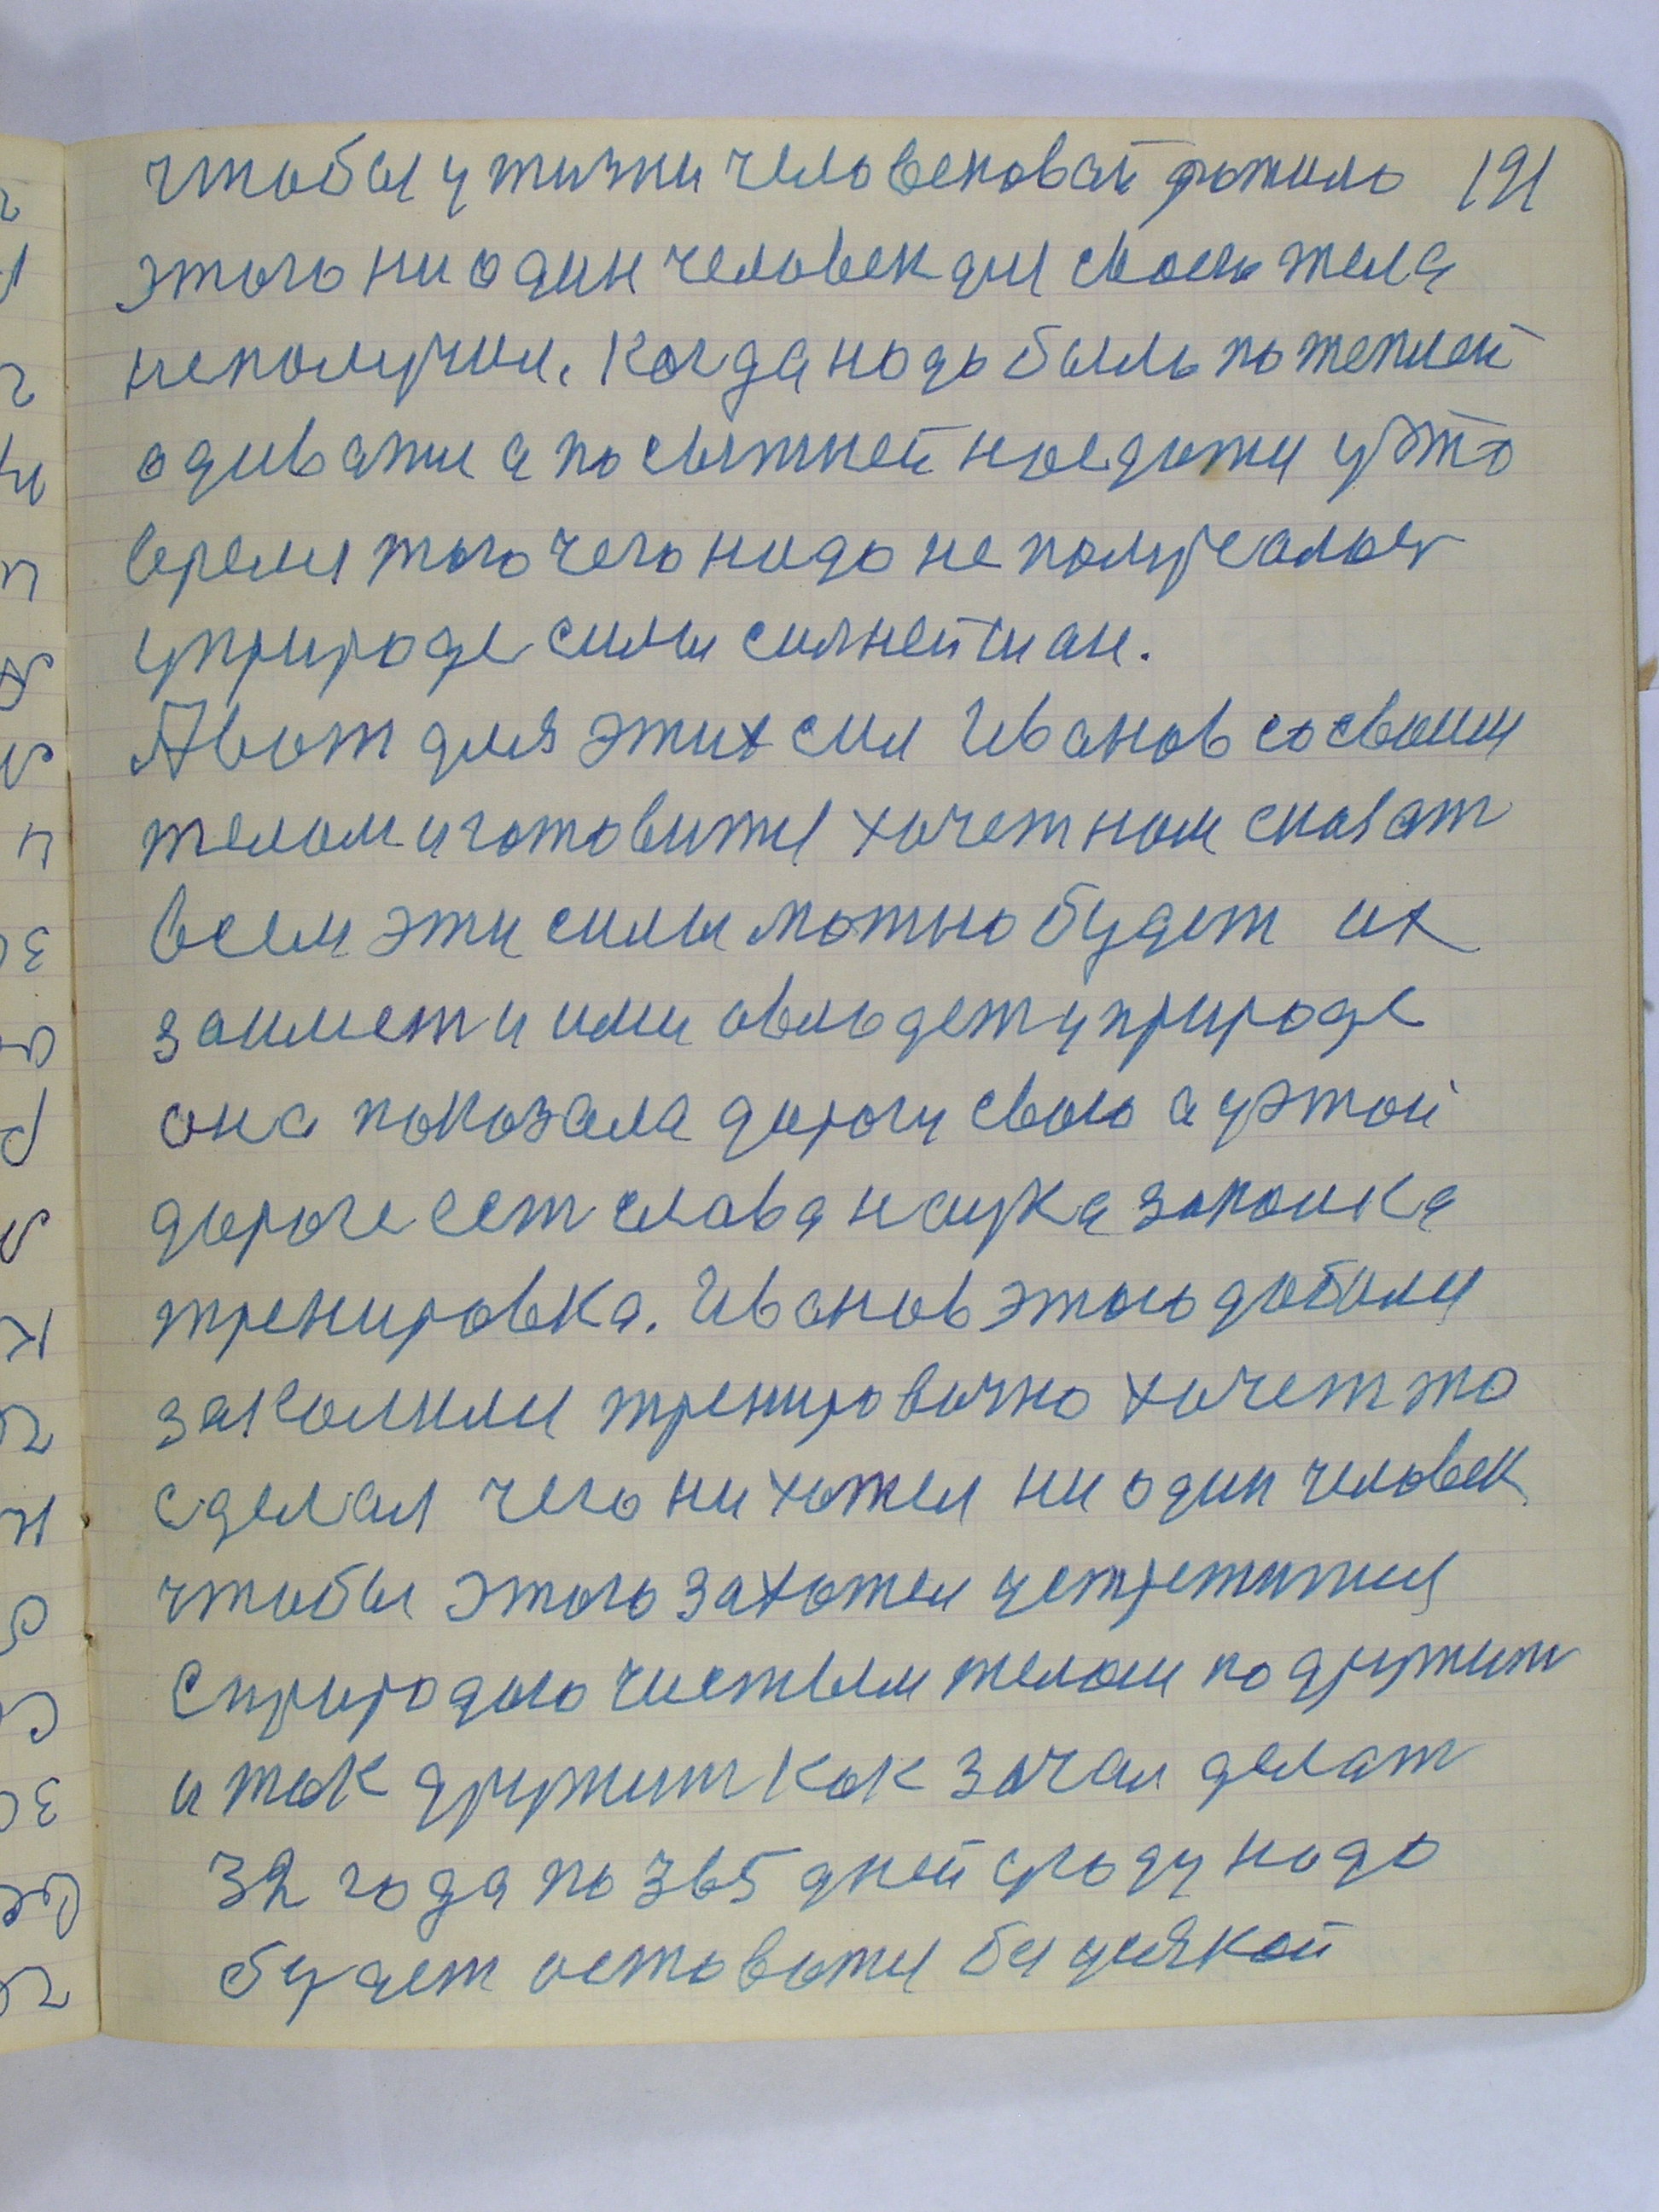 чтобы у жизни человековай рожило 191
этого ни один человек для своего тела
неполучил. Когда надо было потеплей
одиватися посытней наедатися у это
время того чего надо не получалося
у природе силы силней сиАн.
А вот для этих сил Иванов со своим
телом и готовится хочет нам сказат
всем эти силы можно будет их
заимет и ими овладет у природе
она показала дорогу свою а у этой
дороге ест слава наука закалка
тренировка. Иванов этого добился
закалился тренировачно хочет то
сделал чего ни хотел ни один человек
чтобы этого захотел устретится
с природою чистым телом подружит
и так дружит как зачал делат
32 года по 365 дней у году надо
будет оставатся без усякой